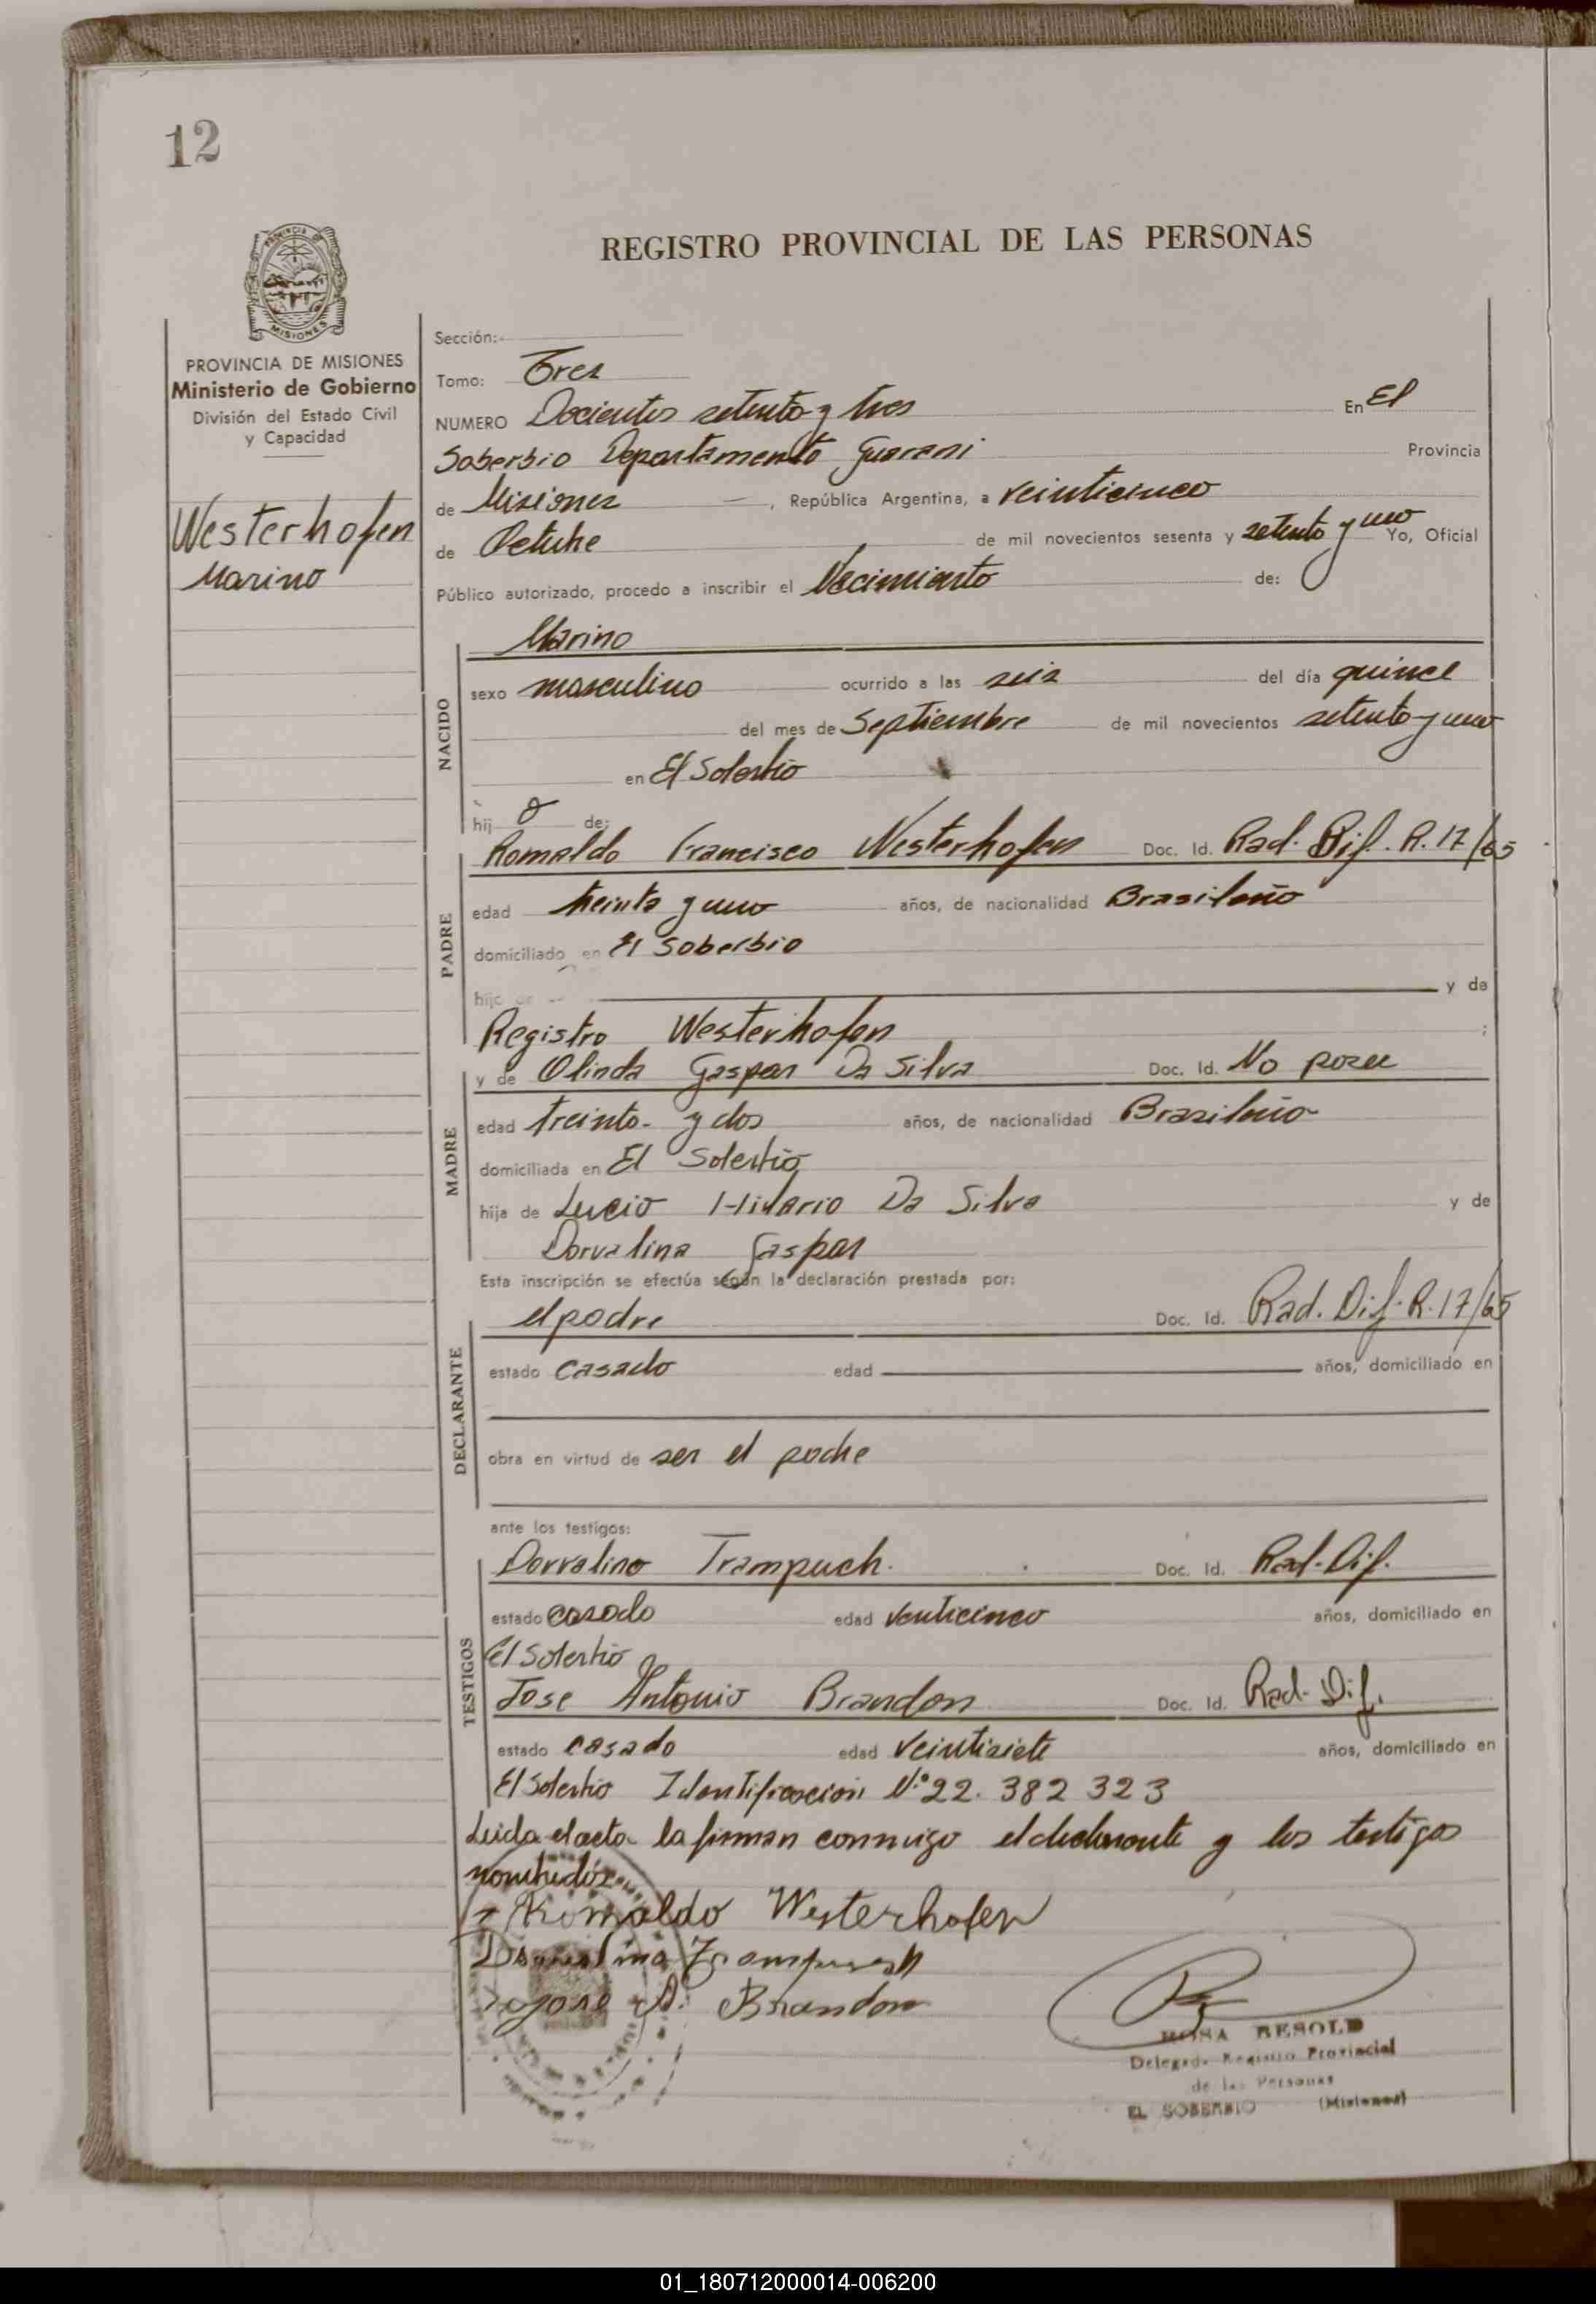 12
REGISTRO PROVINCIAL DE LAS PERSONAS
PROVINCIA DE MISIONES
Ministerio de Gobierno
División del Estado Civil
y Capacidad
Westerhofen
Marino
Sección:
Tomo: Tres
NUMERO Docientos setenta y tres En El
Soberbio Departamento Guarani Provincia
de Misiones, República Argentina, a veinticinco
de Octubre de mil novecientos sesenta y setenta y uno Yo, Oficial
Público autorizado, procedo a inscribir el Nacimiento de:
NACIDO
Marino
sexo masculino ocurrido a las seis del día quince
del mes de Septiembre de mil novecientos setenta y uno
en El Soberbio
hij o de:
PADRE
Romaldo Francisco Westerhofen Doc. Id. Rad. Dif. R. 17/65
edad treinta y uno años, de nacionalidad Brasileño
domiciliado en El Soberbio
hijo de y de
Registro Westerhofen ;
MADRE
y de Olinda Gaspar Da Silva Doc. Id. No posee
edad treinta y dos años, de nacionalidad Brasileño
domiciliada en El Soberbio
hija de Lucio Hilario Da Silva y de
Dorvalina Gaspar
Esta inscripción se efectúa según la declaración prestada por:
DECLARANTE
el padre Doc. Id. Rad. Dif. R. 17/65
estado casado edad años, domiciliado en
obra en virtud de ser el padre
ante los testigos:
TESTIGOS
Dorvalino Trampuch. Doc. Id. Rad. Dif.
estado casado edad venticinco años, domiciliado en
El Soberbio
Jose Antonio Brandon Doc. Id. Rad. Dif.
estado casado edad veintisiete años, domiciliado en
El Soberbio Identificacion N° 22. 382 323
Leida el acta la firman conmigo el declarante y los testigos
nombrados
Romaldo Westerhofen
Jose A. Brandon
ROSA BESOLD
Delegada Registro Provincial
de las Personas
EL SOBERBIO (Misiones)
01_180712000014-006200